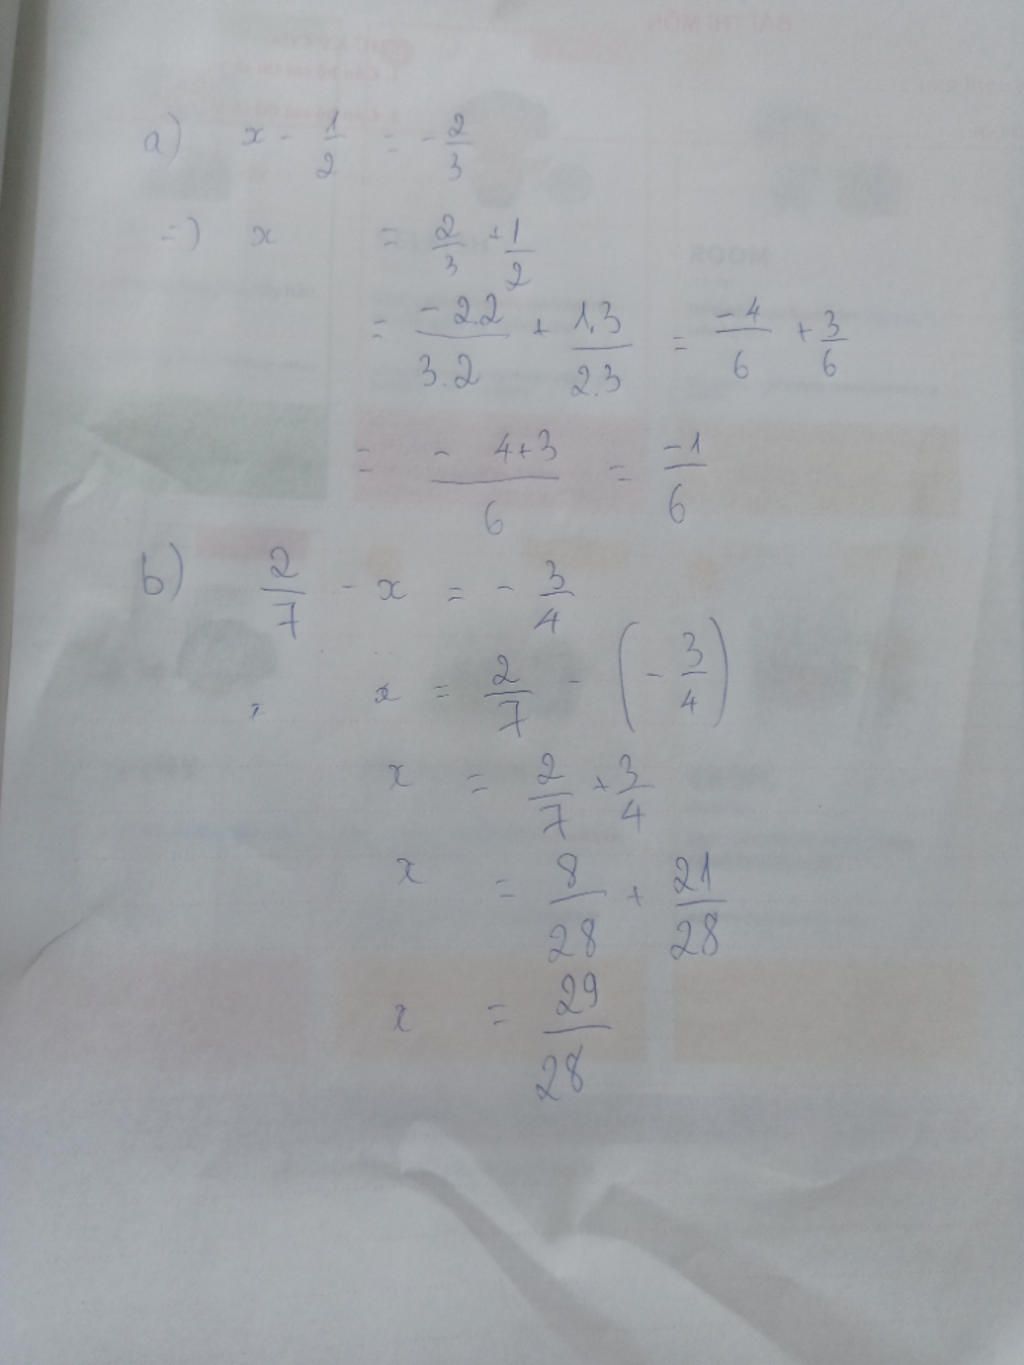 a) x - 1/2 = - 2/3
=) x = 2/3 + 1/2
= -2.2/3.2 + 1.3/2.3 = -4/6 + 3/6
= - 4+3/6 = -1/6
b) 2/7 - x = - 3/4
x = 2/7 - (- 3/4)
x = 2/7 + 3/4
x = 8/28 + 21/28
x = 29/28